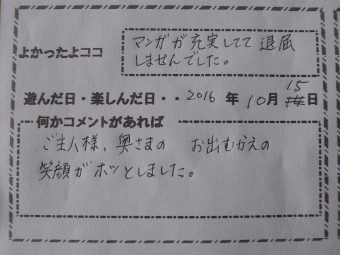 よかったよココ
マンガが充実してて退屈
しませんでした。
遊んだ日・楽しんだ日・・2016年10月15日
何かコメントがあれば
ご主人様、奥さまの お出むかえの
笑顔がホッとしました。